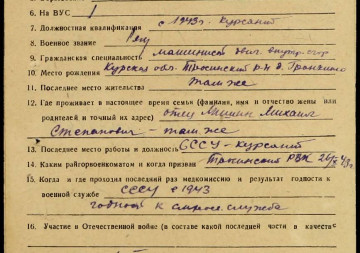 6. На ВУС 1
7. Должностная квалификация с 1943 г. Курсант
8. Военное звание
9. Гражданская специальность машинист двиг. внутр. сгор
10. Место рождения Курская обл. р-н д.
11. Последнее место жительства там же
12. Где проживает в настоящее время семья (фамилия, имя и отчество жены или
родителей и точный их адрес) отец Михаил
Степанович - там же
13. Последнее место работы и должность СССУ - Курсант
14. Каким райгорвоенкоматом и когда призван РВК
15. Когда и где проходил раз медкомиссию и результат годности к
военной службе СССУ с 1943
годной к службе
16. Участие в Отечественной войне (в составе какой последней части в качестве